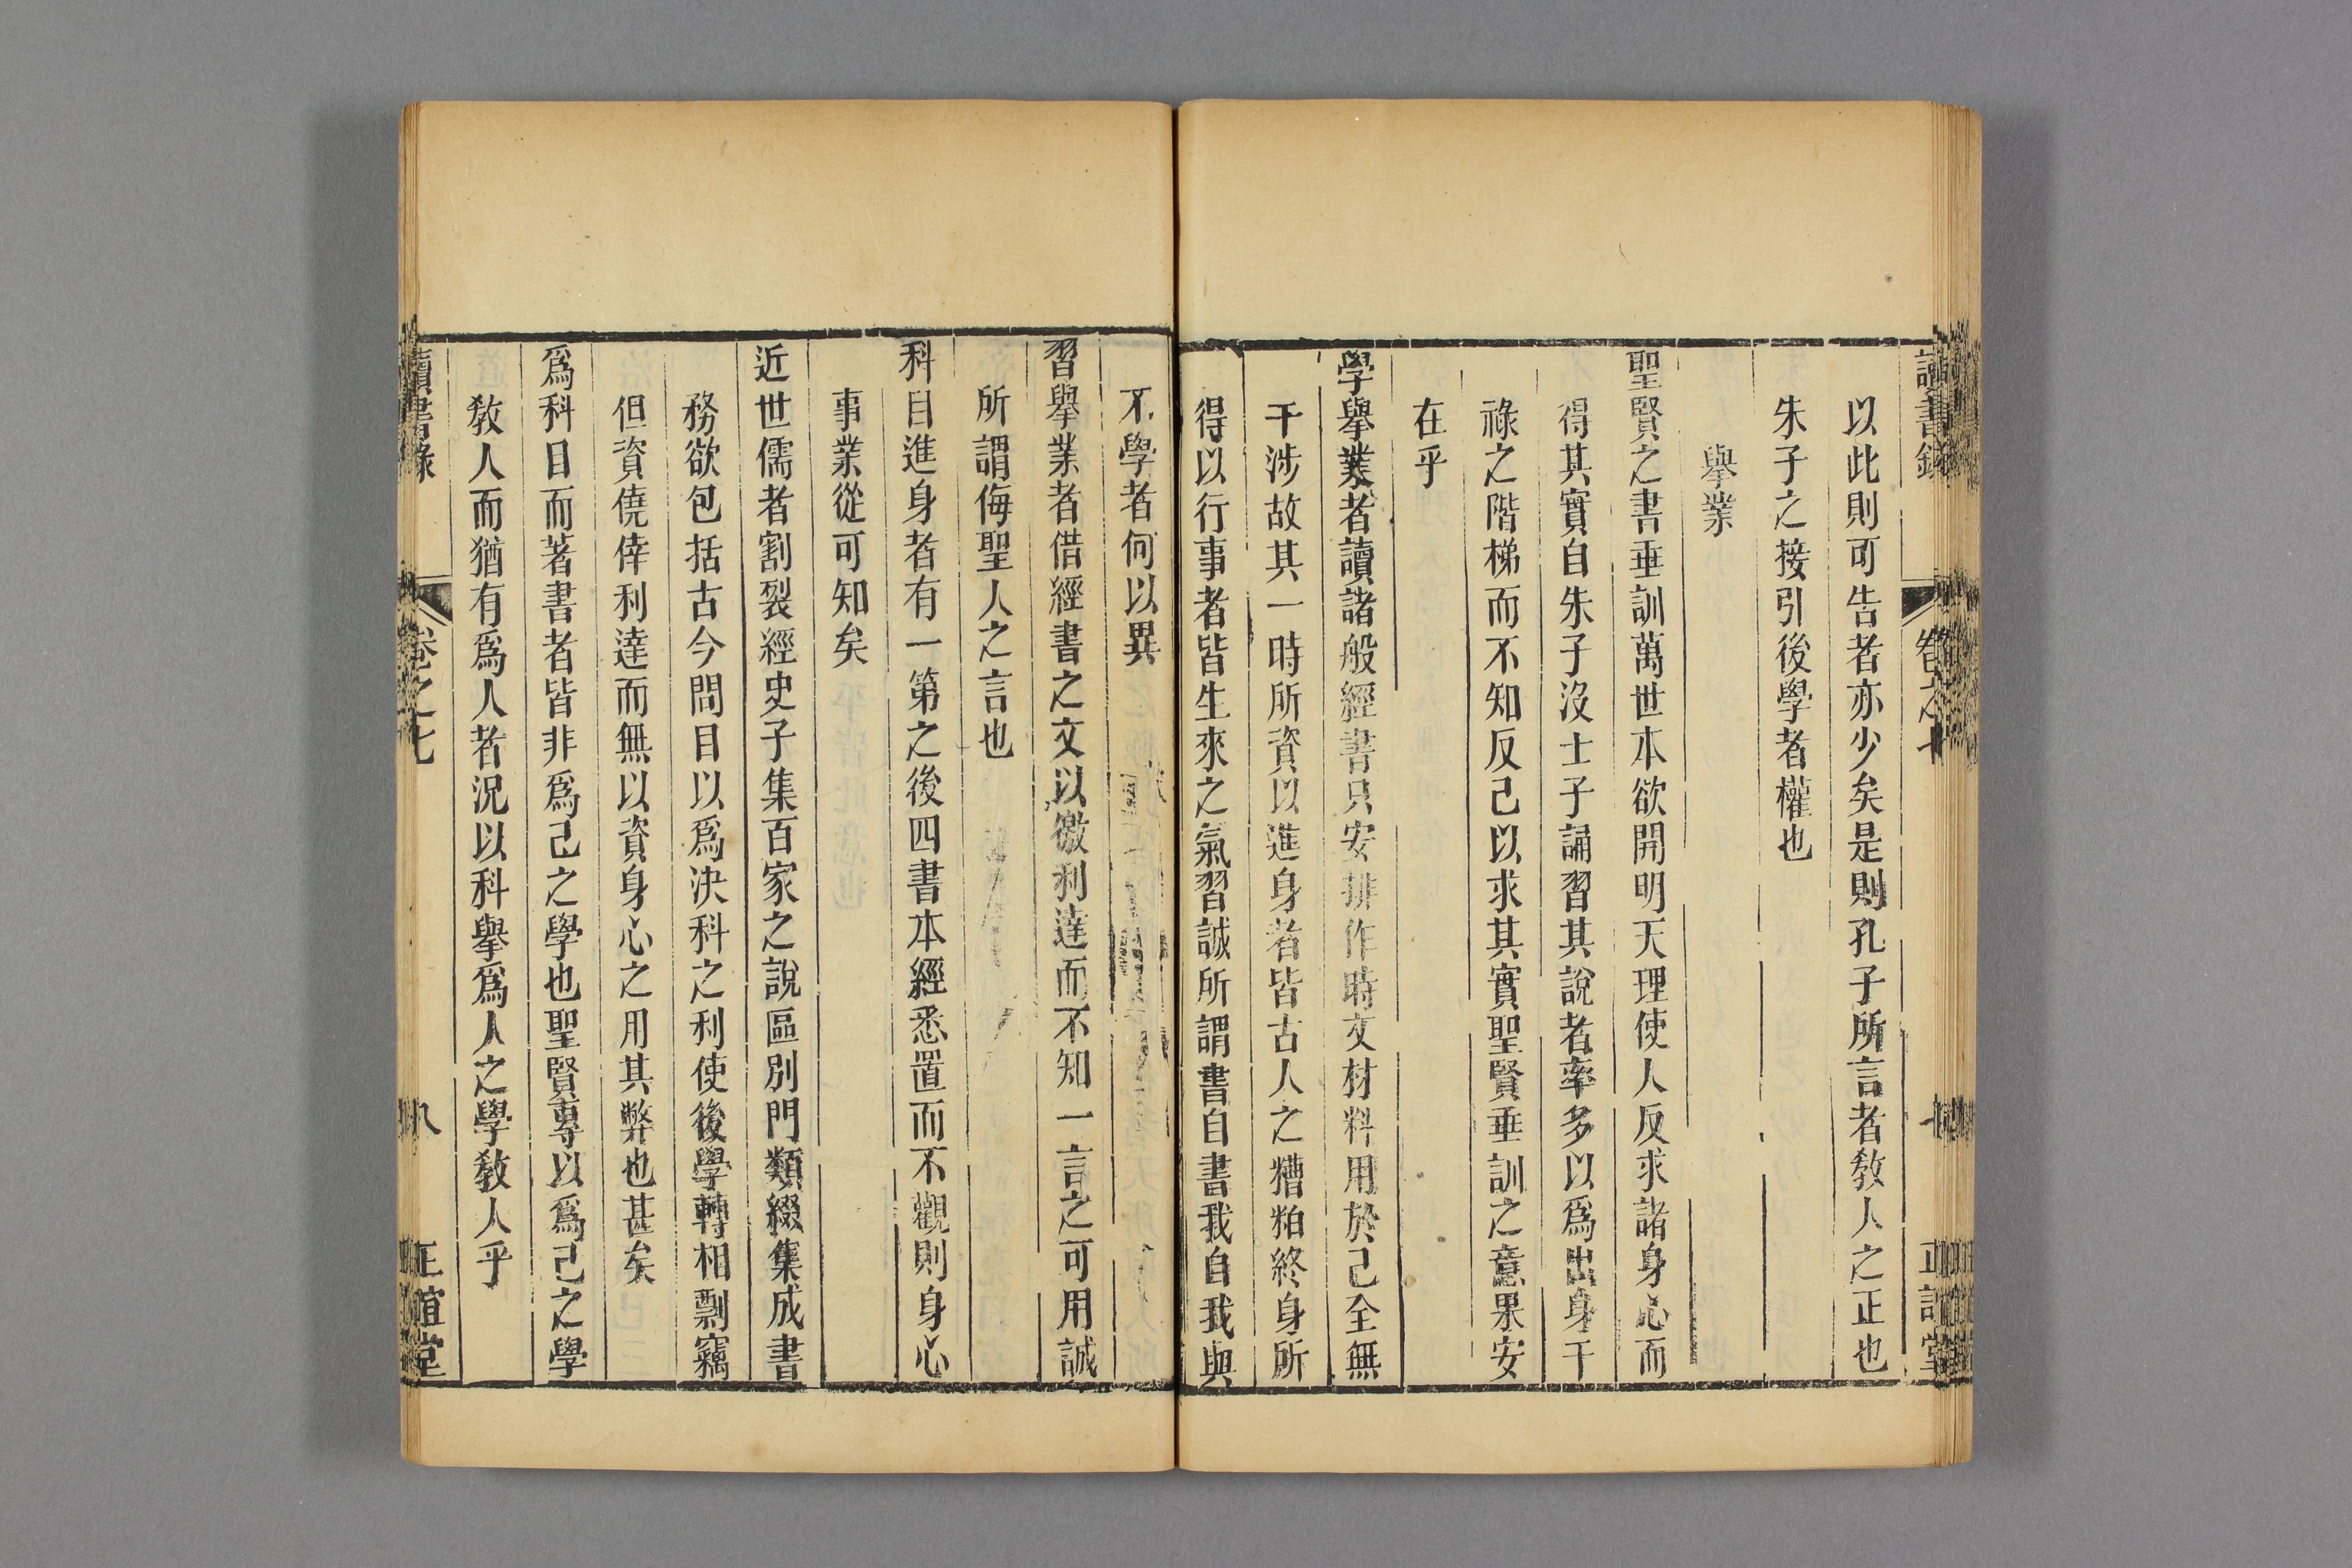 讀書錄 卷之七 七 正誼堂
以此則可告者亦少矣是則孔子所言者敎人之正也
朱子之接引後學者權也
舉業
聖賢之書垂訓萬世本欲開明天理使人反求諸身心而
得其實自朱子沒士子誦習其說者率多以爲出身干
祿之階梯而不知反己以求其實聖賢垂訓之意果安
在乎
學舉業者讀諸般經書只安排作時文材料用於己全無
干涉故其一時所資以進身者皆古人之糟粕終身所
得以行事者皆生來之氣習誠所謂書自書我自我與
不學者何以異
習舉業者借經書之文以徼利達而不知一言之可用誠
所謂侮聖人之言也
科目進身者有一第之後四書本經悉置而不觀則身心
事業從可知矣
近世儒者割裂經史子集百家之說區別門類綴集成書
務欲包括古今問目以爲決科之利使後學轉相剽竊
但資僥倖利達而無以資身心之用其弊也甚矣
爲科目而著書者皆非爲己之學也聖賢專以爲己之學
敎人而猶有爲人者況以科舉爲人之學敎人乎
讀書錄 卷之七 八 正誼堂